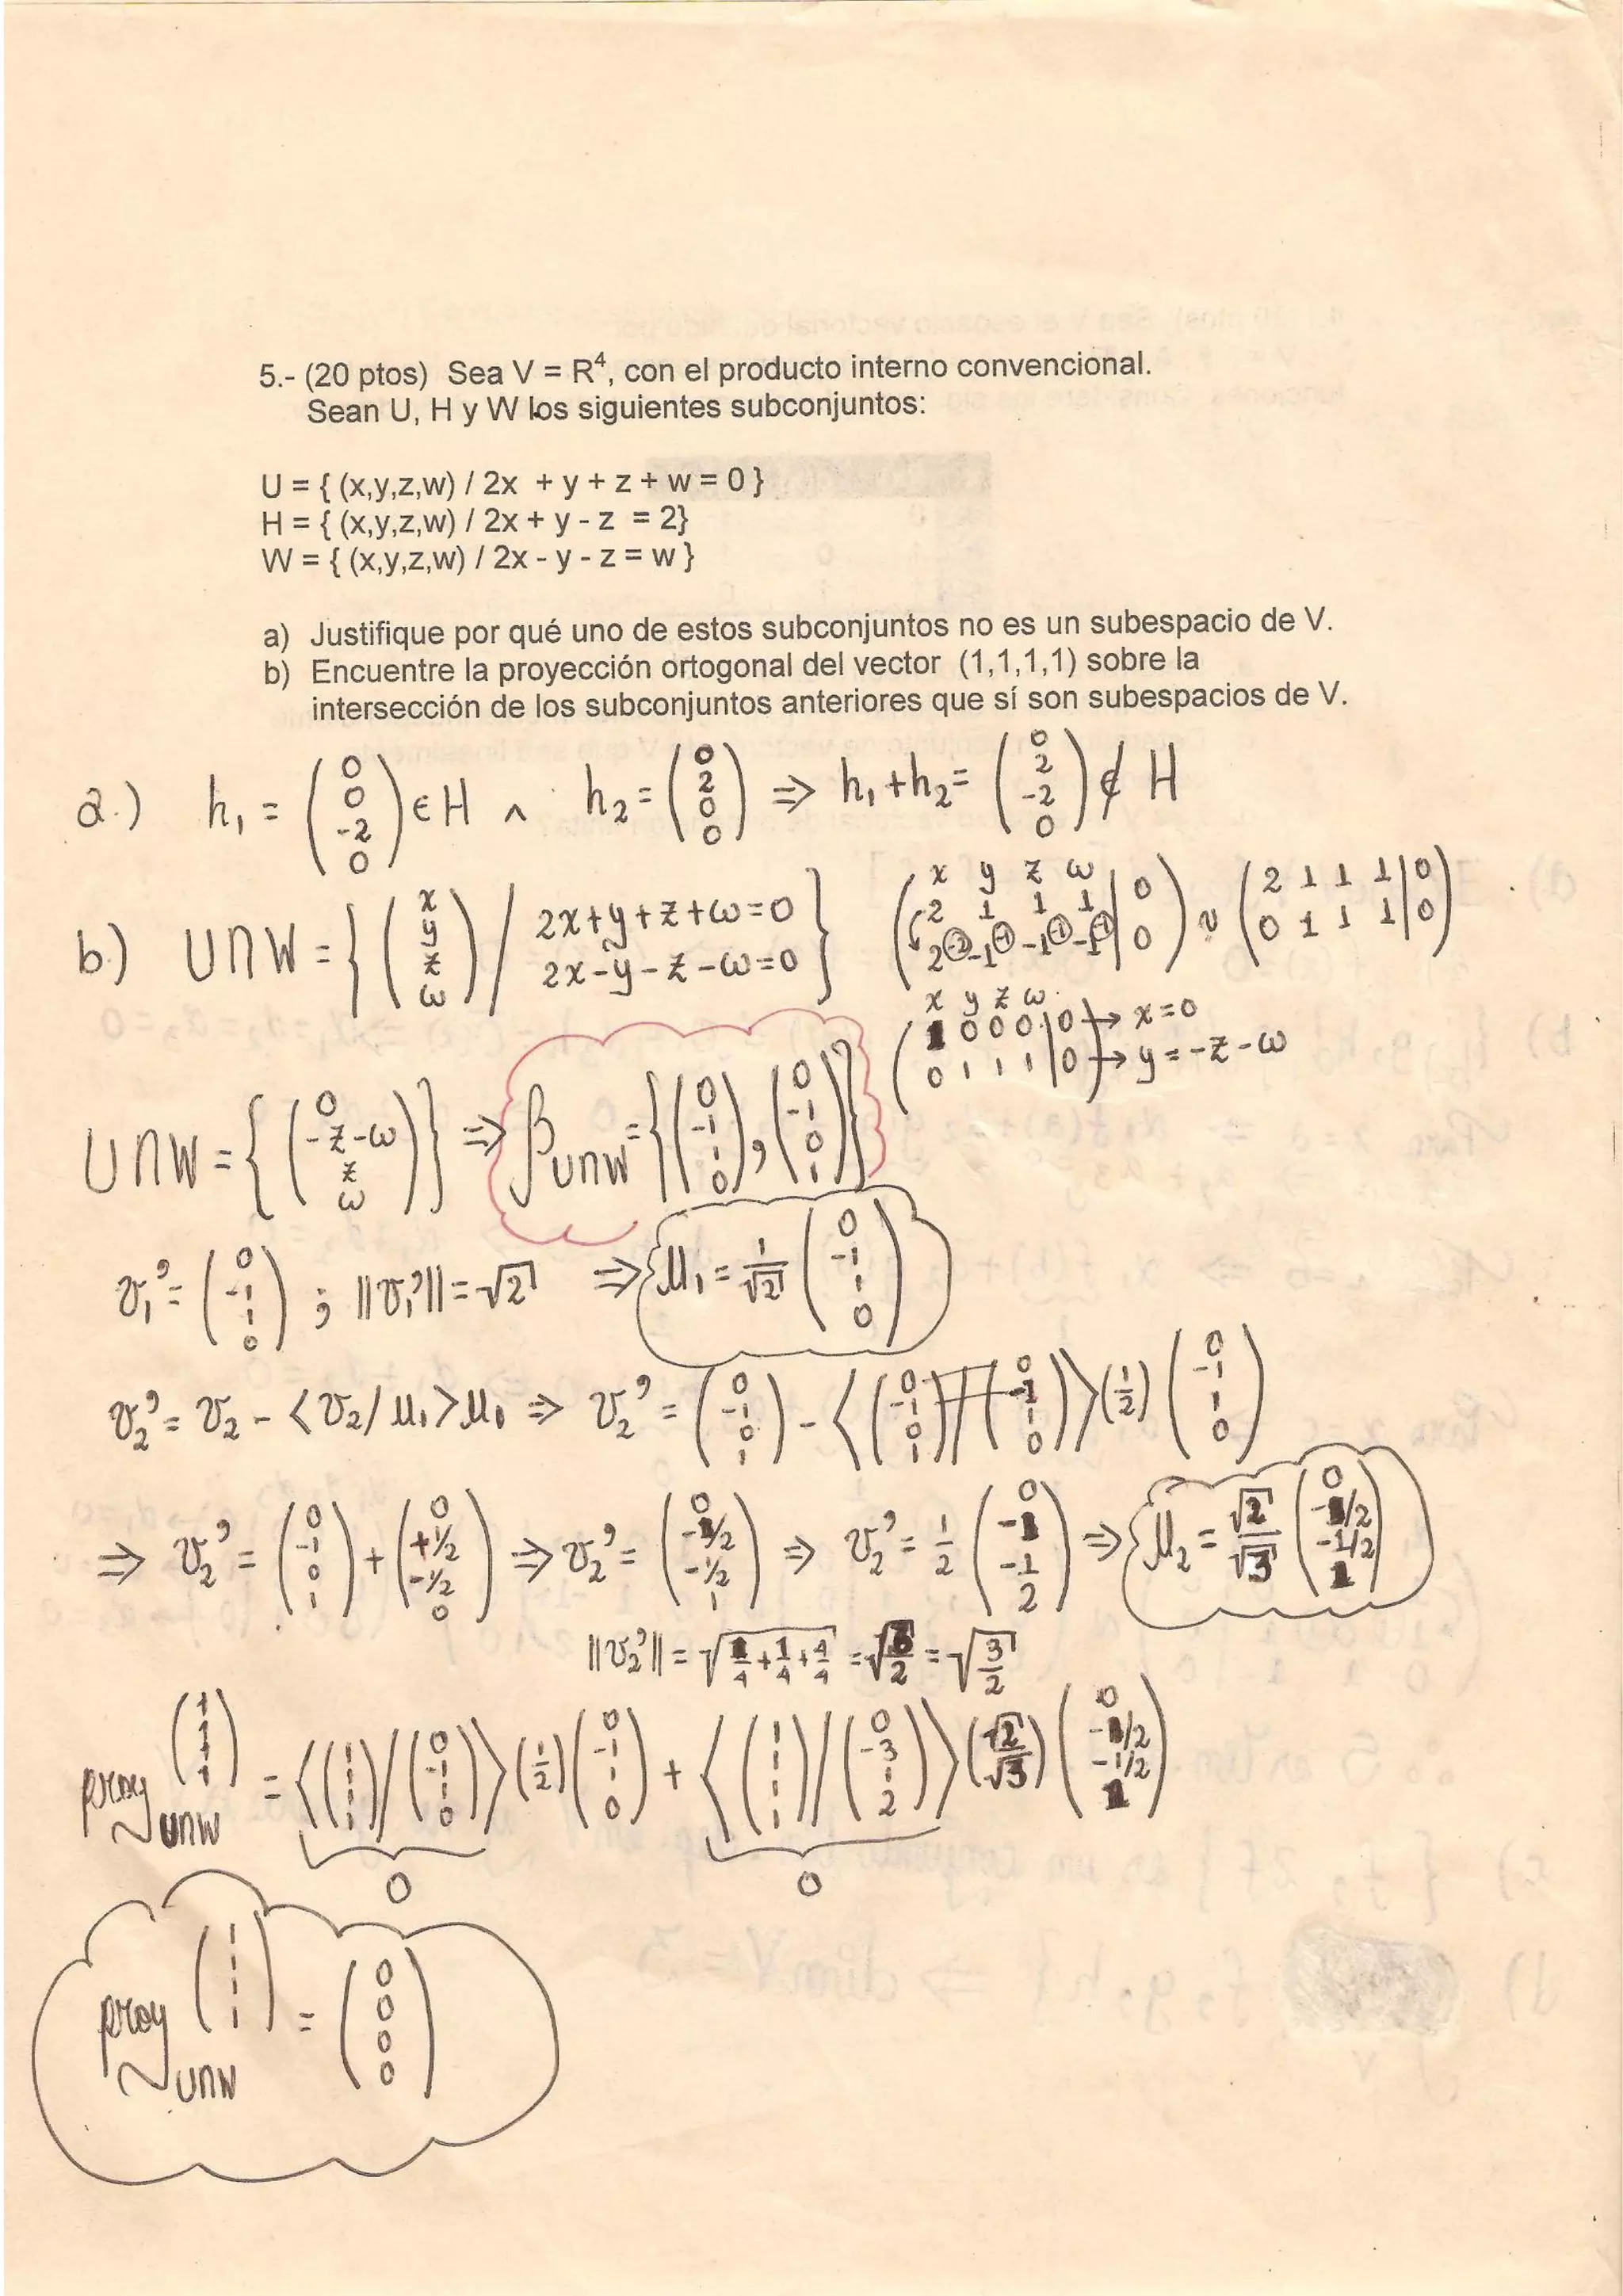 5.- (20 ptos) Sea V = R⁴, con el producto interno convencional.
Sean U, H y W los siguientes subconjuntos:
U = { (x,y,z,w) / 2x + y + z + w = 0 }
H = { (x,y,z,w) / 2x + y - z = 2}
W = { (x,y,z,w) / 2x - y - z = w }
a) Justifique por qué uno de estos subconjuntos no es un subespacio de V.
b) Encuentre la proyección ortogonal del vector (1,1,1,1) sobre la
intersección de los subconjuntos anteriores que sí son subespacios de V.
a.) h₁ = (0 0 -2 0) ∈ H ∧ h₂ = (0 2 0 0) ⇒ h₁ + h₂ = (0 2 -2 0) ∉ H
b) U∩W = { (x y z ω) / 2x+y+z+ω=0 2x-y-z-ω=0 } x y z ω (2 1 1 1 | 0 2 -2 -1 -1 -1 -1 -1 -1 | 0) ~ (2 1 1 1 | 0 0 1 1 1 | 0)
x y z ω (1 0 0 0 | 0 0 1 1 1 | 0) → x=0 → y = -z-ω
U∩W = { (0 -z-ω z ω) } ⇒ β U∩W = { (0 -1 1 0), (0 -1 0 1) }
v₁' = (0 -1 1 0) ; ||v₁'|| = √2 ⇒ μ₁ = 1/√2 (0 -1 1 0)
v₂' = v₂ - <v₂/μ₁>μ₁ ⇒ v₂' = (0 -1 0 1) - <(0 -1 0 1)/(0 -1 1 0)>(1/2)(0 -1 1 0)
⇒ v₂' = (0 -1 0 1) + (0 +1/2 -1/2 0) ⇒ v₂' = (0 -1/2 -1/2 1) ⇒ v₂' = 1/2 (0 -1 -1 2) ⇒ μ₂ = √2/√3 (0 -1/2 -1/2 1)
||v₂'|| = √(1/4 + 1/4 + 4/4) = √6/2 = √(3/2)
proy U∩W (1 1 1 1) = <(1 1 1 1)/(0 -1 1 0)>(1/2)(0 -1 1 0) + <(1 1 1 1)/(0 -3 1 2)>(√2/√3)(0 -1/2 -1/2 1)
0 0
proy U∩W (1 1 1 1) = (0 0 0 0)